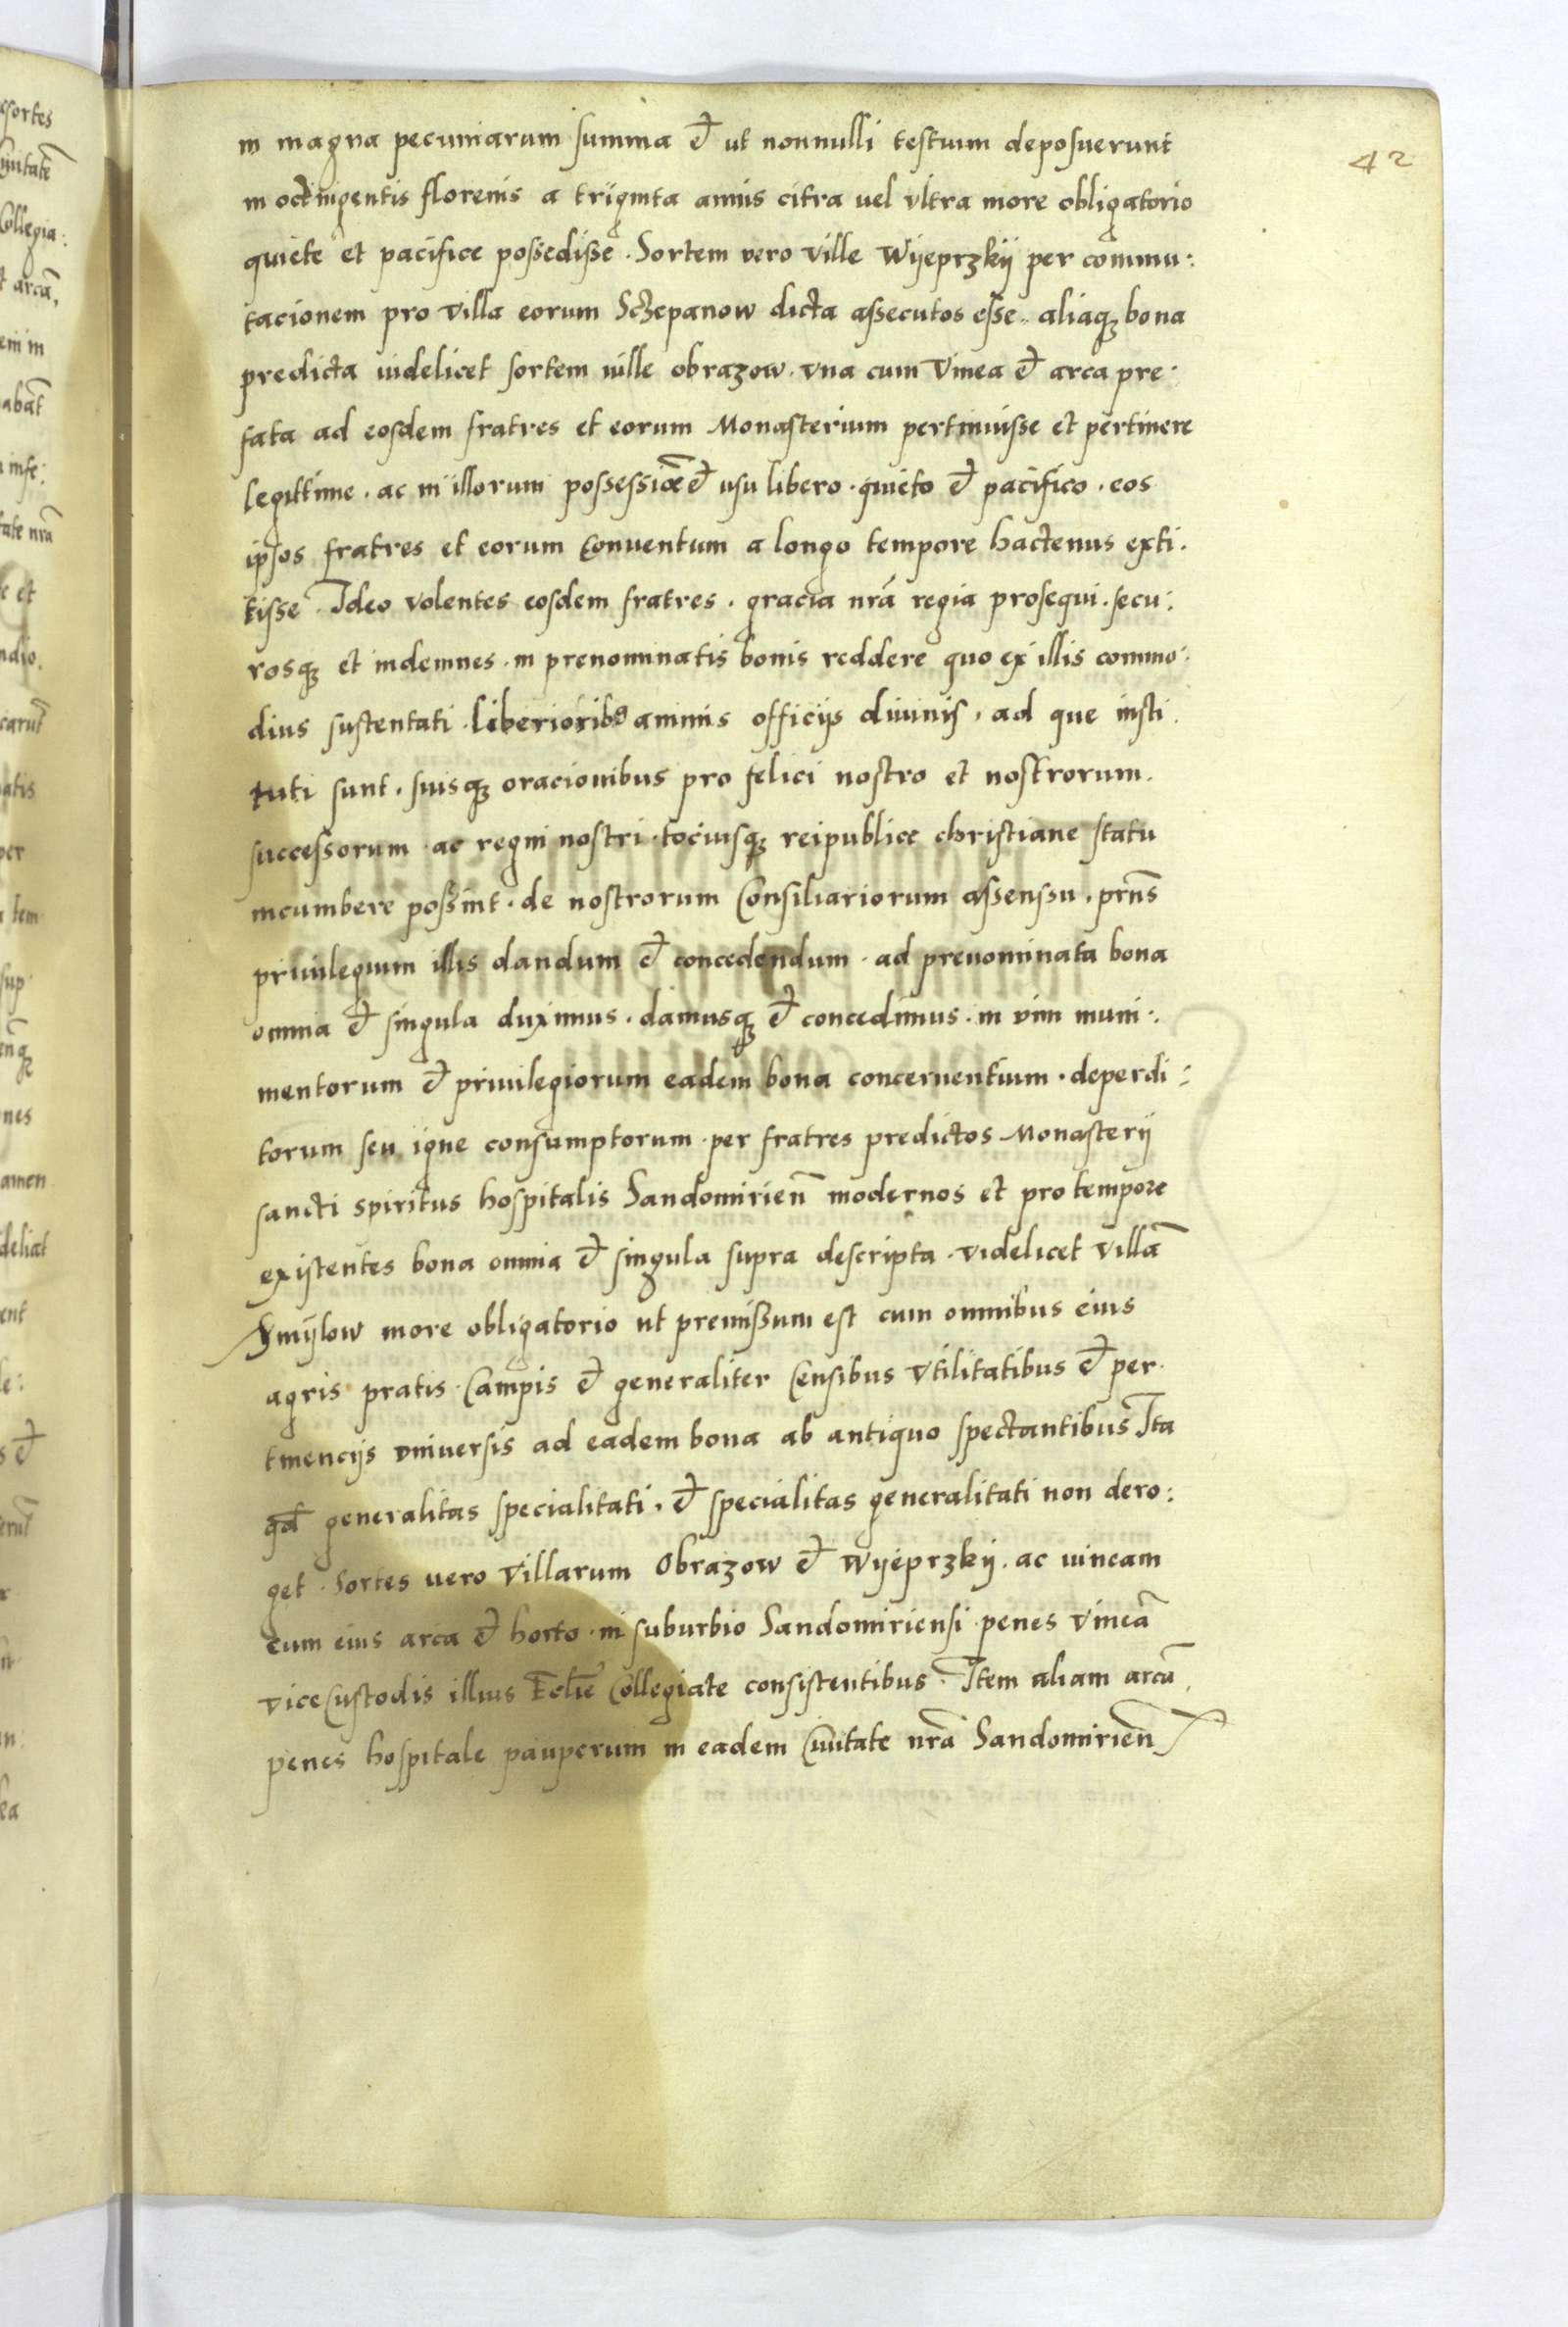 42
in magna pecuniarum summa et ut nonnulli testium deposuerunt
in octingentis florenis a triginta annis citra uel ultra more obligatorio
quiete et pacifice possedisse. Sortem vero ville Wyeprzky per commu:
tacionem pro villa eorum Sczepanow dicta assecutos esse. aliaqꝫ bona
predicta uidelicet sortem uille obrazow. vna cum Vinea et arca pre
fata ad eosdem fratres et eorum Monasterium pertinuisse et pertinere
legittime. ac in illorum possessiōe et usu libero. quieto et pacifico. eos
ipsos fratres et eorum Conuentum a longo tempore hactenus exti.
tisse. Ideo volentes eosdem fratres. gracia nrā regia prosequi. secu:
rosqꝫ et indemnes. in prenominatis bonis reddere quo ex illis commo:
dius sustentati liberioribꝰ animis officijs diuinis, ad que insti
tuti sunt. suisqꝫ oracionibus pro felici nostro et nostrorum.
successorum ac regni nostri. tociusqꝫ reipublice christiane statu
incumbere possint. de nostrorum Consiliariorum assenssu. prn̄s
priuilegium illis dandum et concedendum. ad prenominata bona
omnia et singula duximus. damusqꝫ et concedimus. in vim muni:
mentorum et priuilegiorum eadem bona concernentium. deperdi:
torum seu igne consumptorum. per fratres predictos Monasterij
sancti spiritus hospitalis Sandomirien̄ modernos et pro tempore
existentes bona omnia et singula supra descripta. videlicet villā
Smylow more obligatorio ut premissum est cum omnibus eius
agris pratis. Campis et generaliter Censibus Vtilitatibus et per
tinencijs vniuersis ad eadem bona ab antiquo spectantibus Ita
qd̄ generalitas specialitati. et specialitas generalitati non dero:
get. Sortes uero Villarum Obrazow et Wyeprzky. ac uineam
cum eius arca et horto. in suburbio Sandomiriensi penes Vineā
vice Custodis illius Ecclīe Collegiate consistentibus. Item aliam arcā
penes hospitale pauperum in eadem Ciuitate nrā Sandomirien̄